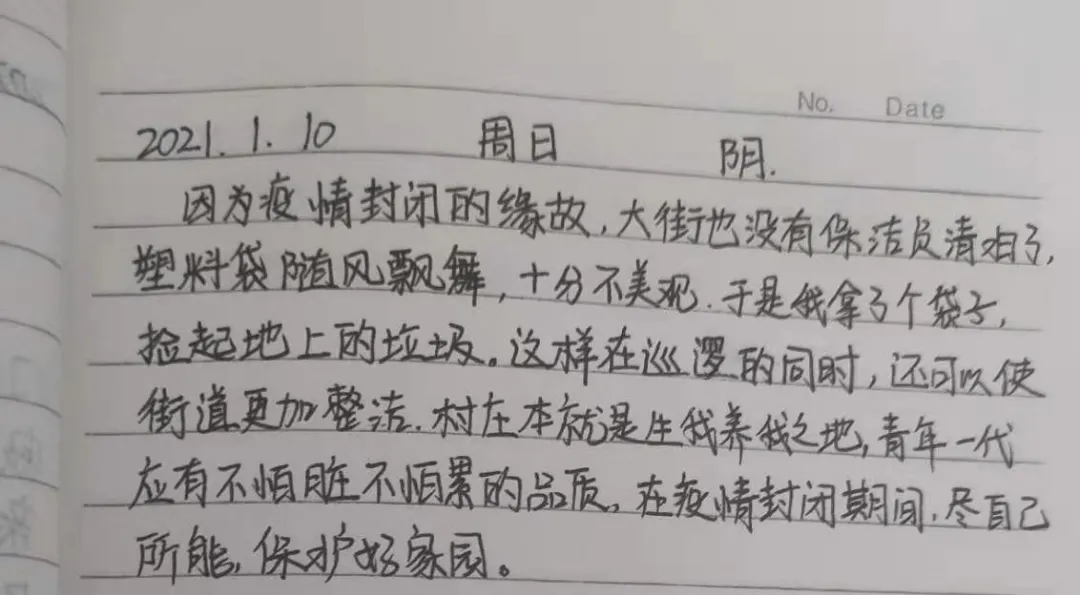 No. Date
2021.1.10 周日 阴.
因为疫情封闭的缘故,大街也没有保洁员清扫了,
塑料袋随风飘舞,十分不美观.于是我拿了个袋子,
捡起地上的垃圾。这样在巡逻的同时,还可以使
街道更加整洁.村庄本就是生我养我之地,青年一代
应有不怕脏不怕累的品质,在疫情封闭期间,尽自己
所能,保护好家园。